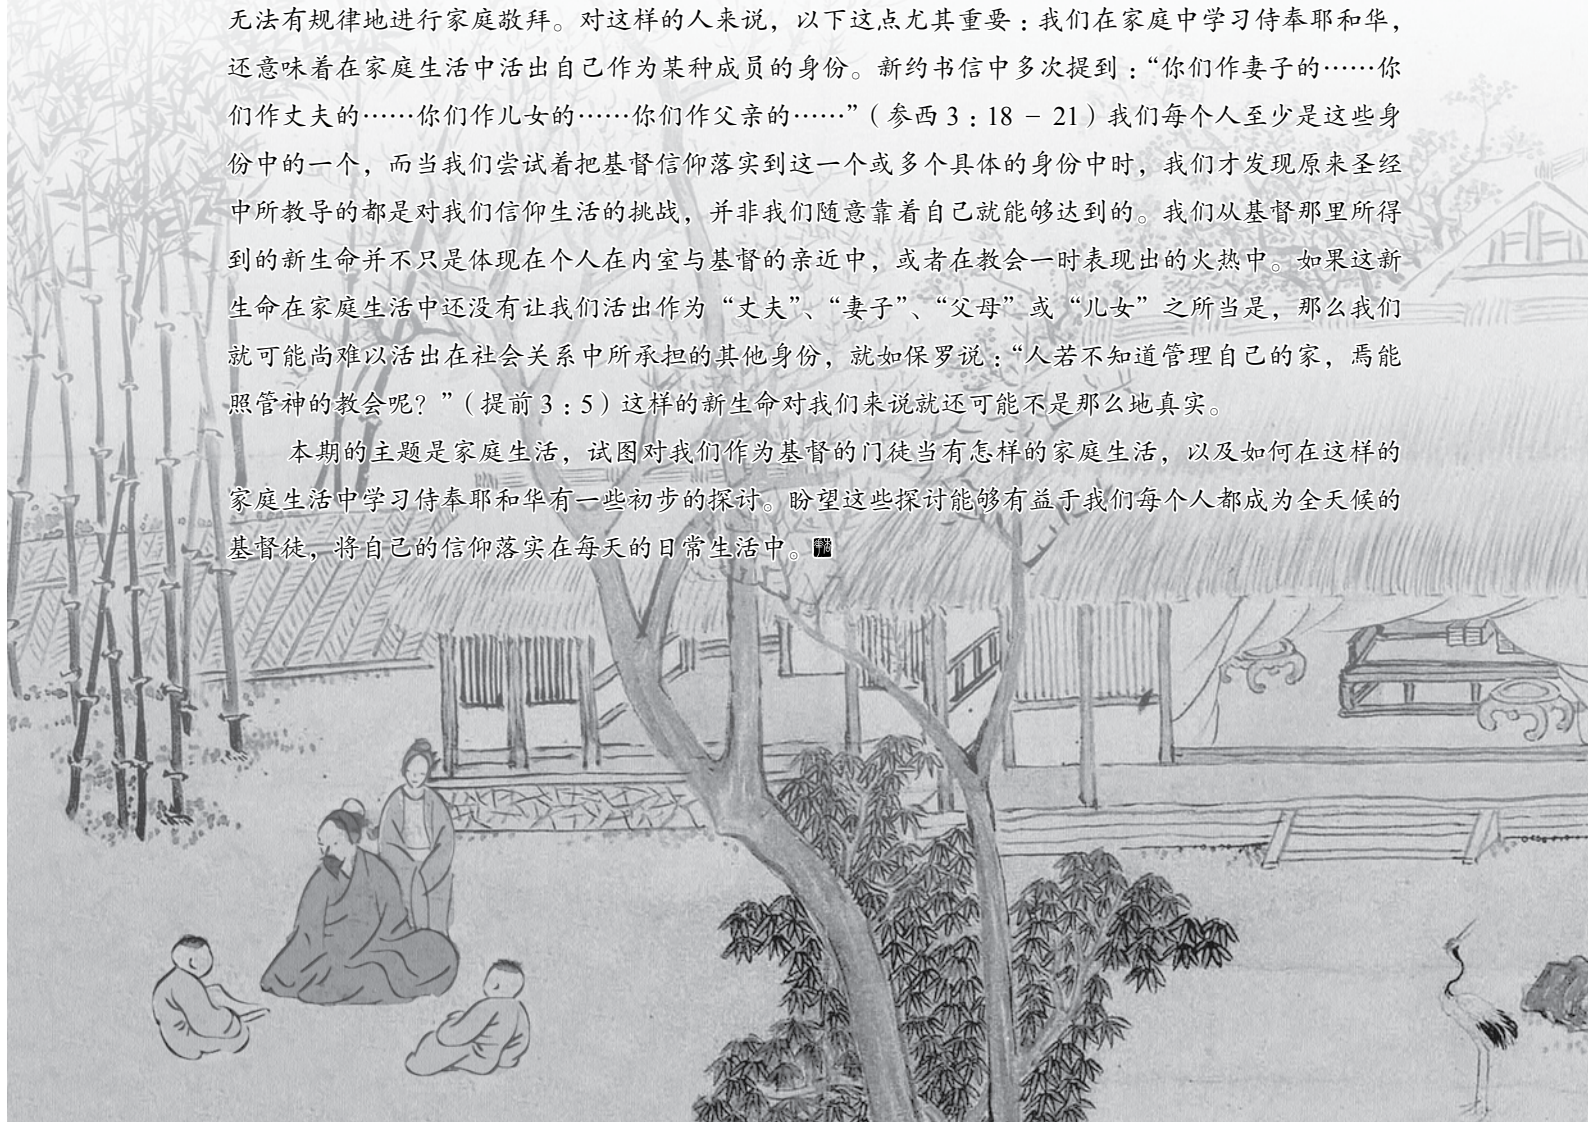 无法有规律地进行家庭敬拜。对这样的人来说，以下这点尤其重要：我们在家庭中学习侍奉耶和华，
还意味着在家庭生活中活出自己作为某种成员的身份。新约书信中多次提到：“你们作妻子的……你
们作丈夫的……你们作儿女的……你们作父亲的……”（参西 3：18 － 21）我们每个人至少是这些身
份中的一个，而当我们尝试着把基督信仰落实到这一个或多个具体的身份中时，我们才发现原来圣经
中所教导的都是对我们信仰生活的挑战，并非我们随意靠着自己就能够达到的。我们从基督那里所得
到的新生命并不只是体现在个人在内室与基督的亲近中，或者在教会一时表现出的火热中。如果这新
生命在家庭生活中还没有让我们活出作为“丈夫”、“妻子”、“父母”或“儿女”之所当是，那么我们
就可能尚难以活出在社会关系中所承担的其他身份，就如保罗说：“人若不知道管理自己的家，焉能
照管神的教会呢？”（提前 3：5）这样的新生命对我们来说就还可能不是那么地真实。
本期的主题是家庭生活，试图对我们作为基督的门徒当有怎样的家庭生活，以及如何在这样的
家庭生活中学习侍奉耶和华有一些初步的探讨。盼望这些探讨能够有益于我们每个人都成为全天候的
基督徒，将自己的信仰落实在每天的日常生活中。